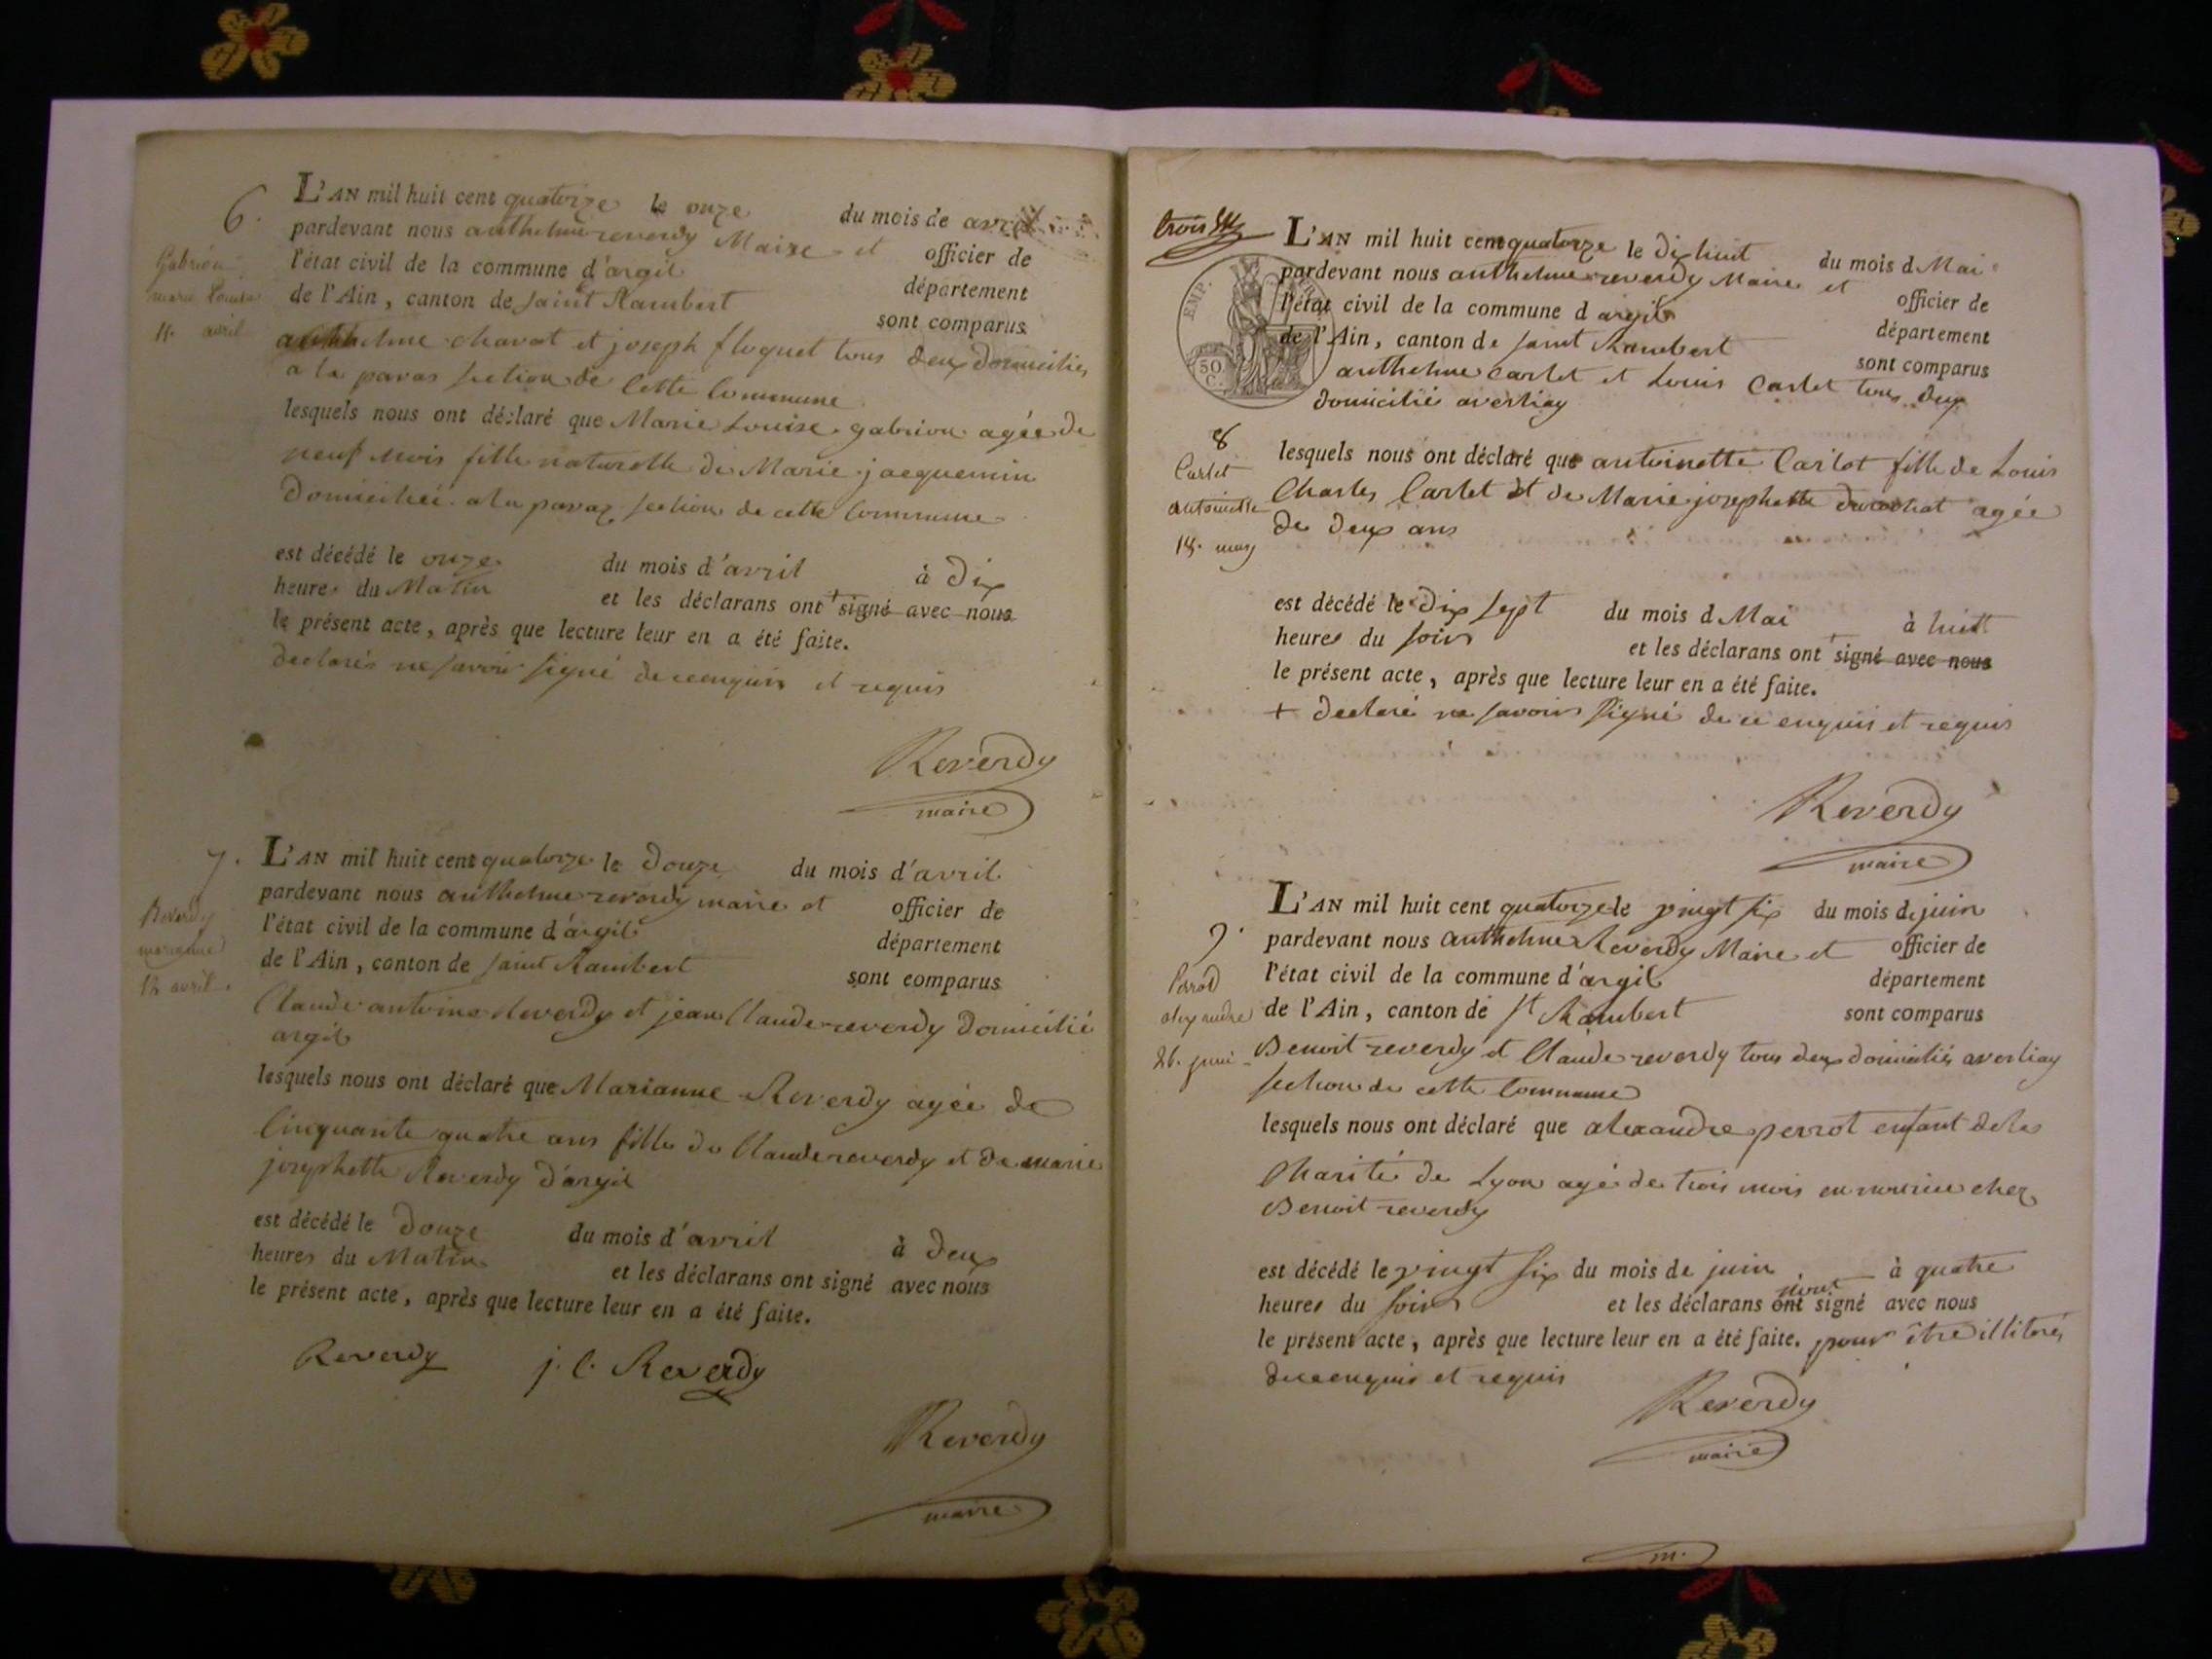 6.
Gabrion
marie Louise
11. avril
L'AN mil huit cent quatorze le onze du mois de avril
pardevant nous anthelme reverdy Maire et officier de
l'état civil de la commune d'argil département
de l'Ain, canton de saint Rambert sont comparus
anthelme chavat et joseph floquet tous deux domiciliés
a la paras section de cette Commune
lesquels nous ont déclaré que Marie Louise gabrion agée de
neuf mois fille naturelle de Marie jacquemin
domiciliée a la paraz section de cette Commune
est décédé le onze du mois d'avril à dix
heures du Matin et les déclarans ont + signé avec nous
le présent acte, après que lecture leur en a été faite.
declarés ne savoir signé de ce enquis et requis
Reverdy
maire
7.
Reverdy
marianne
12 avril.
L'AN mil huit cent quatorze le douze du mois d'avril
pardevant nous anthelme reverdy maire et officier de
l'état civil de la commune d'argil département
de l'Ain, canton de saint Rambert sont comparus
Claude antoine Reverdy et jean Claude reverdy domicilié
argil
lesquels nous ont déclaré que Marianne Reverdy agée de
Cinquante quatre ans fille de Claude reverdy et de marie
josephette Reverdy d'argil
est décédé le douze du mois d'avril à deux
heures du Matin et les déclarans ont signé avec nous
le présent acte, après que lecture leur en a été faite.
Reverdy j. C. Reverdy
Reverdy
maire
trois
EMP.
50
C.
8
Carlet
antoinette
18. may
L'AN mil huit cent quatorze le dix huit du mois d Mai
pardevant nous anthelme reverdy Maire et officier de
l'état civil de la commune d argil département
de l'Ain, canton de saint Rambert sont comparus
anthelme Carlet et Louis Carlet tous deux
domiciliés averliay
lesquels nous ont déclaré que antoinette Carlot fille de Louis
Charles Carlet et de Marie josephette agée
de deux ans
est décédé le dix sept du mois d Mai à huit
heures du soir et les déclarans ont + signé avec nous
le présent acte, après que lecture leur en a été faite.
+ declaré ne savoir signé de ce enquis et requis
Reverdy
maire
9.
Perrod
alexandre
26. juin
L'AN mil huit cent quatorze le vingt six du mois de juin
pardevant nous anthelme Reverdy Maire et officier de
l'état civil de la commune d'argil département
de l'Ain, canton de St Rambert sont comparus
Benoit reverdy et Claude reverdy tous deux domiciliés averliay
section de cette Commune
lesquels nous ont déclaré que alexandre perrot enfant de la
Charité de Lyon agé de trois mois en nourice chez
Benoit reverdy
est décédé le vingt six du mois de juin à quatre
heures du soir et les déclarans ont n'ont signé avec nous
le présent acte, après que lecture leur en a été faite. pour être illitérés
de ce enquis et requis
Reverdy
maire
m.